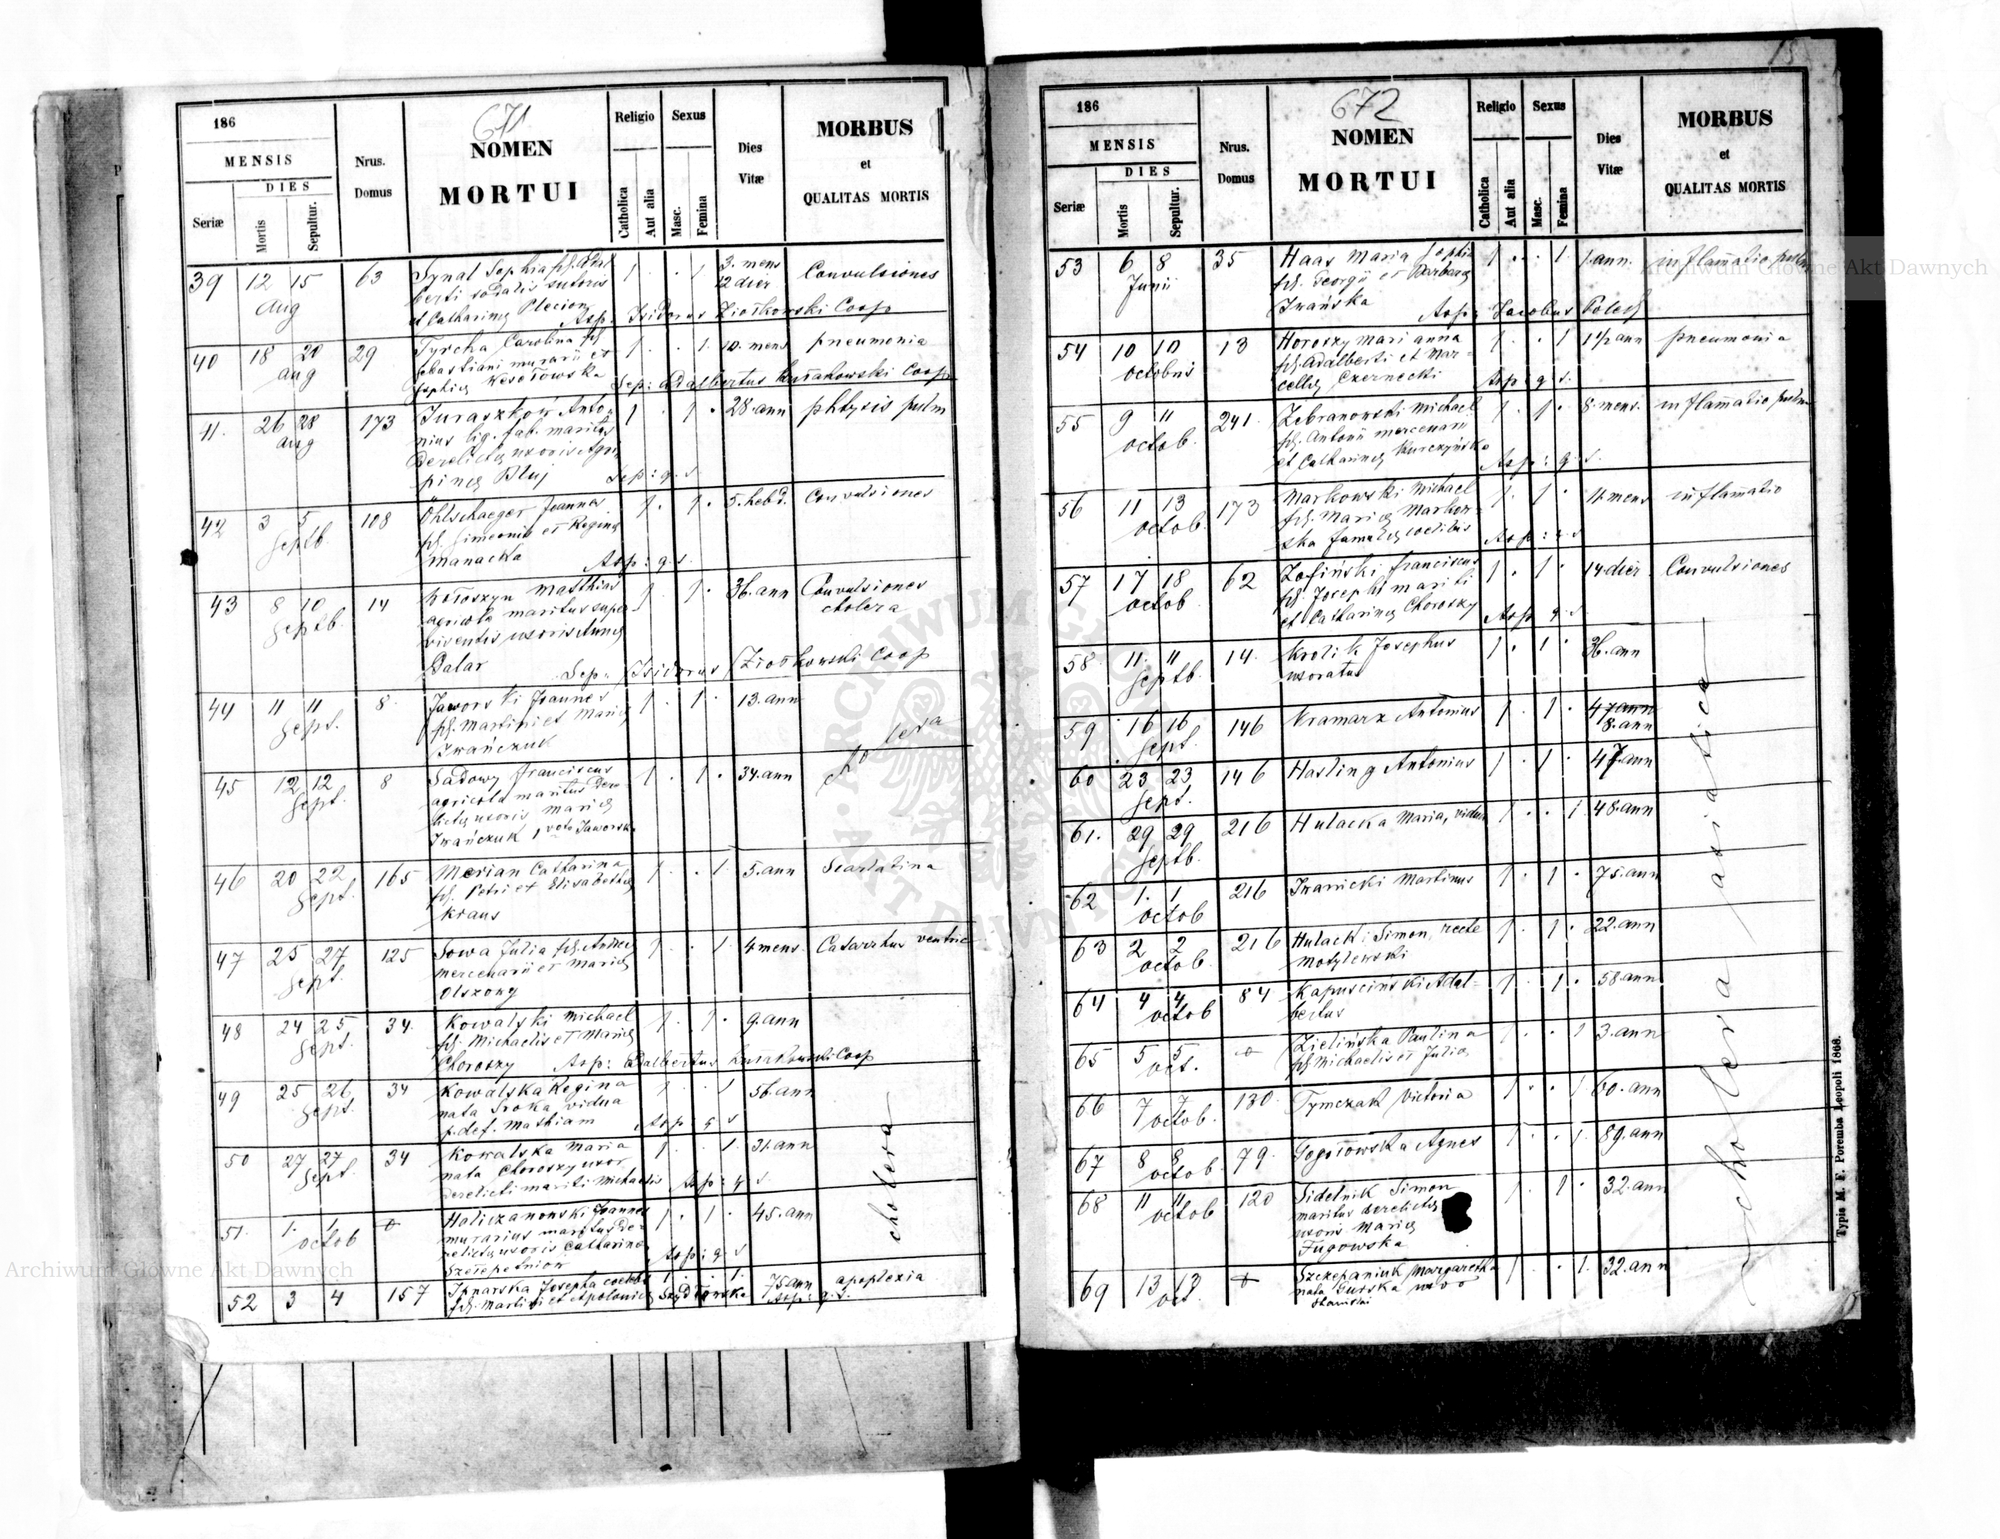 671
186
MENSIS
DIES
Seriæ
Mortis
Sepultur.
Nrus. Domus
NOMEN
MORTUI
Religio
Catholica
Aut alia
Sexus
Masc.
Femina
Dies Vitæ
MORBUS
et
QUALITAS MORTIS
39 12 15 63 Synal Sophia fil. Adal 1 . . 1 3. mens Convulsiones
Aug berti sodalis sutoris 12 dier
et Catharinæ Plecion
Asp: Isidorus Ziołkowski Coop
40 18 20 29 Tyrcha Carolina fil 1 . . 1. 10. mens pneumonia
aug Sebastiani murarii et
Sophiæ Wesołowska Sep: Adalbertus Kułakowski Coop
41. 26 28 173 Juraszków Anto- 1 . 1 . 28. ann phtysis pulm
aug nius lig. fab. maritus
derelictæ uxoris Agri
pinæ Bluj Sep: q. s.
42 3 5 108 Öhlschaeger Joannes 1 . 1 . 5. hebd. Convulsiones
Septb fil. Simeonis et Reginæ
Manacka Asp: q. s.
43 8 10 14 Kołoszyn Matthias 1 . 1 . 36. ann Convulsiones
Septb. agricola maritus supe cholera
viventis uxoris Annæ
Balar Sep: Isidorus Ziołkowski Coop
44 11 11 8 Jaworski Joannes 1 . 1 . 13. ann
Sept. fil. Martini et Mariæ
Iwańczuk
cholera
45 12 12 8 Sadowy Franciscus 1 . 1 . 34. ann
Sept. agricola maritus dere
lictæ uxoris Mariæ
Iwańczuk 1 voto Jaworsk
46 20 22 165 Merian Catharina 1 . . 1 5. ann Scarlatina
Sept. fil. Petri et Elisabethæ
Kraus
47 25 27 125 Sowa Julia fil. Andreæ 1 . . 1 4 mens Catarrhus ventric
Sept. mercenarii et Mariæ
Olszowy
48 24 25 34. Kowalski Michael 1 . 1 . 9. ann
Sept. fil. Michaelis et Mariæ
Choroszy Asp: Adalbertus Kułakowski Coop
49 25 26 34 Kowalska Regina 1 . . 1 56. ann
Sept. nata Sroka vidua
p. def. Mathiam Asp: q s
50 27 27 34 Kowalska Maria 1 . . 1. 31. ann
Sept. nata Choroszy uxor
derelicti mariti Michaelis Asp: q s.
51. 1. 1 Haliczanowski Joannes 1 . 1 . 45. ann
octob murarius maritus de-
relictæ uxoris Catharinæ
Szczepetnior Asp: q s
cholera
52 3 4 157 Josepha coelebs 1 . . 1. 75 ann apoplexia
fil. Martini et Apoloniæ Szydłowska Asp: q. s.
15
672
186
MENSIS
DIES
Seriæ
Mortis
Sepultur.
Nrus. Domus
NOMEN
MORTUI
Religio
Catholica
Aut alia
Sexus
Masc.
Femina
Dies Vitæ
MORBUS
et
QUALITAS MORTIS
53 6 8 35 Haas Maria Sophia 1 . . 1. 1 ann. inflamatio pulm
Junii fil. Georgii et Barbaræ
Iwańska Asp: Jacobus Polech
54 10 10 13 Horoszy Marianna 1 . . 1 1½ ann pneumonia
octobris fil. Adalberti et Mar-
cellæ Czernecki Asp: q s.
55 9 11 241. Zebranowski Michael 1 . 1 . 8. mens. inflamatio pulm
octob. fil. Antonii mercenarii
et Catharinæ Kurczyńska Asp: q. s.
56 11 13 173 Markowski Michael 1 . 1 . 11. mens inflamatio
octob. fil. Mariæ Markow-
ska famulæ coelibis Asp: q s
57 17 18 62 Zofiński Franciscus 1 . 1 . 14. dier. Convulsiones
octob fil. Josephi mariti
et Catharinæ Choroszy Asp q s.
58. 11. 11 14. Krolik Josephus 1 . 1 . 36. ann
Septb. uxoratus
59 16 16 146 Kramarz Antonius 1 . 1 . 47 ann
Sept. 8. ann
60 23 23 146 Hasling Antonius 1 . 1 . 47. ann
Sept.
61. 29 29 216 Hulacka Maria, vidua 1 . . 1 48. ann
Septb.
62 1. 1 216 Iwanicki Martinus 1 . 1 . 75. ann
octob
63 2 2 216 Hulacki Simon, recte 1 . 1 . 22. ann
octob. Motylewski
64 4 4 84 Kapuściński Adal- 1 . 1 . 58. ann
octob bertus
65 5 5 Zielińska Paulina 1 . . 1 3. ann
oct. fil. Michaelis et Julia
66 7 7 130. Tymczak Victoria 1 . . 1. 60. ann
octob.
67 8 8 79. Gogołowska Agnes 1 . . 1. 89. ann
octob.
68 11 11 120 Sidelnik Simon 1 . 1 . 32. ann
octob maritus derelictæ
uxoris Mariæ
Fugowska
69 13 13 Szczepaniuk Margaretha 1 . . 1. 32. ann
oct. nata Gurska uxor
Stanislai
cholera asiatica
Typis M. F. Poremba Leopoli 1868.
ARCHIWUM GŁÓWNE AKT DAWNYCH
Archiwum Główne Akt Dawnych
Archiwum Główne Akt Dawnych